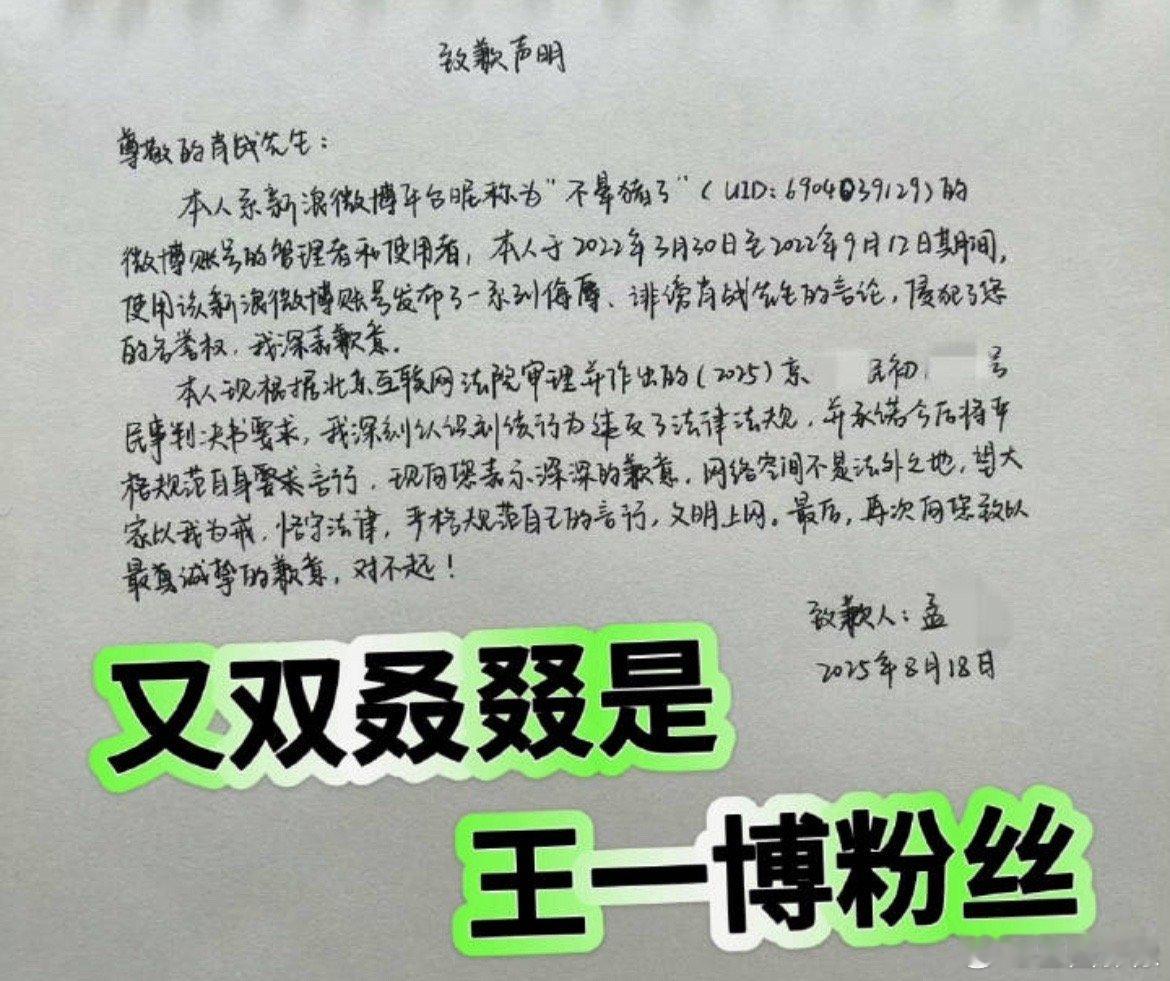 致歉声明
尊敬的肖战先生：
本人系新浪微博平台昵称为“不晕猪了”（UID：6904039129）的
微博账号的管理者和使用者，本人于2022年3月30日至2022年9月12日期间，
使用该新浪微博账号发布了一系列侮辱、诽谤肖战先生的言论，侵犯了您
的名誉权，我深表歉意。
本人现根据北京互联网法院审理并作出的（2025）京 民初 号
民事判决书要求，我深刻认识到该行为违反了法律法规，并承诺今后将严
格规范自身要求言行，现向您表示深深的歉意，网络空间不是法外之地，望大
家以我为戒，恪守法律，严格规范自己的言行，文明上网。最后，再次向您致以
最真诚挚的歉意，对不起！
致歉人：孟
2025年8月18日
又双叒叕是
王一博粉丝